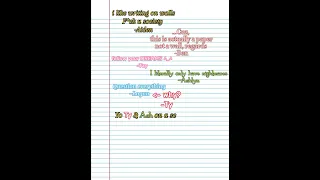 I like writing on walls
F*ck a society
-Aiden
this is actually a paper
not a wall, regards
-Ben
Follow your DREAMS! ^_^
-Tay
I literally only have nightmares
-Ashlyn
question everything
-Logan
<- why?
-Ty
Yo Ty & Ash on a se